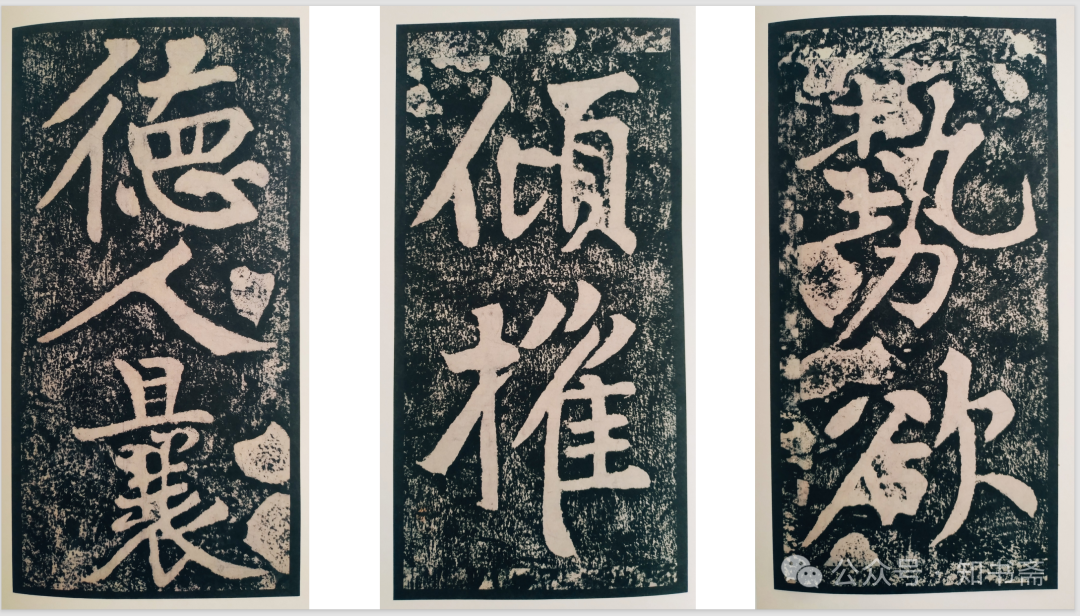 德人曩
傾摧
勢欲
公众号 · 知书斋